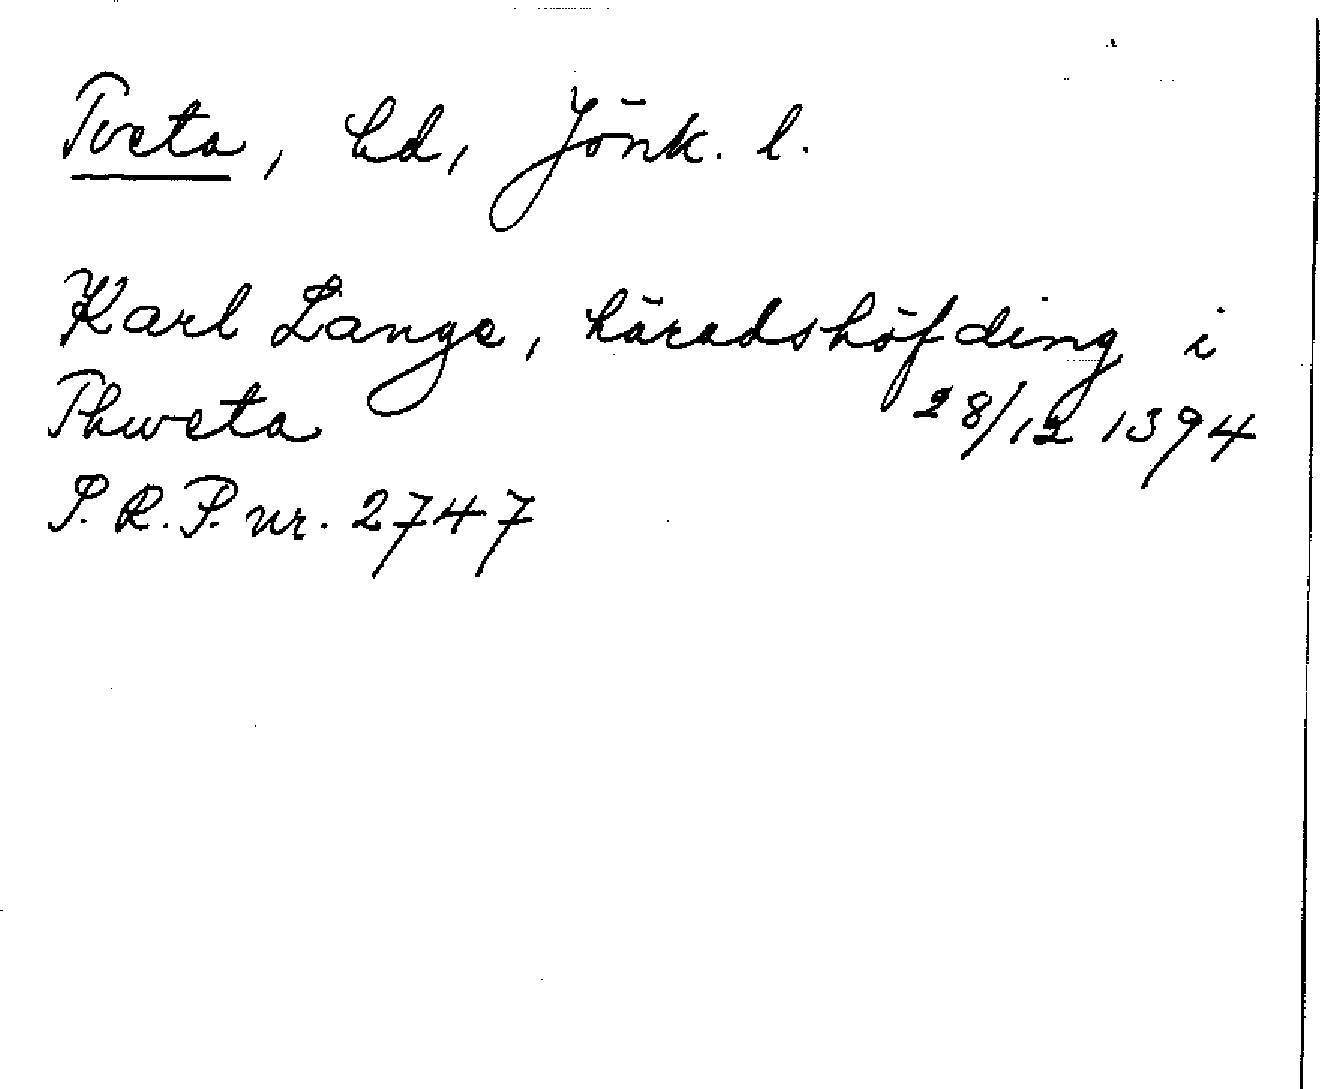 Tveta, hd, Jönk. l.
Karl Lange, häradshöfding i
Thweta 28/12 1394
S. R. P. nr. 2747